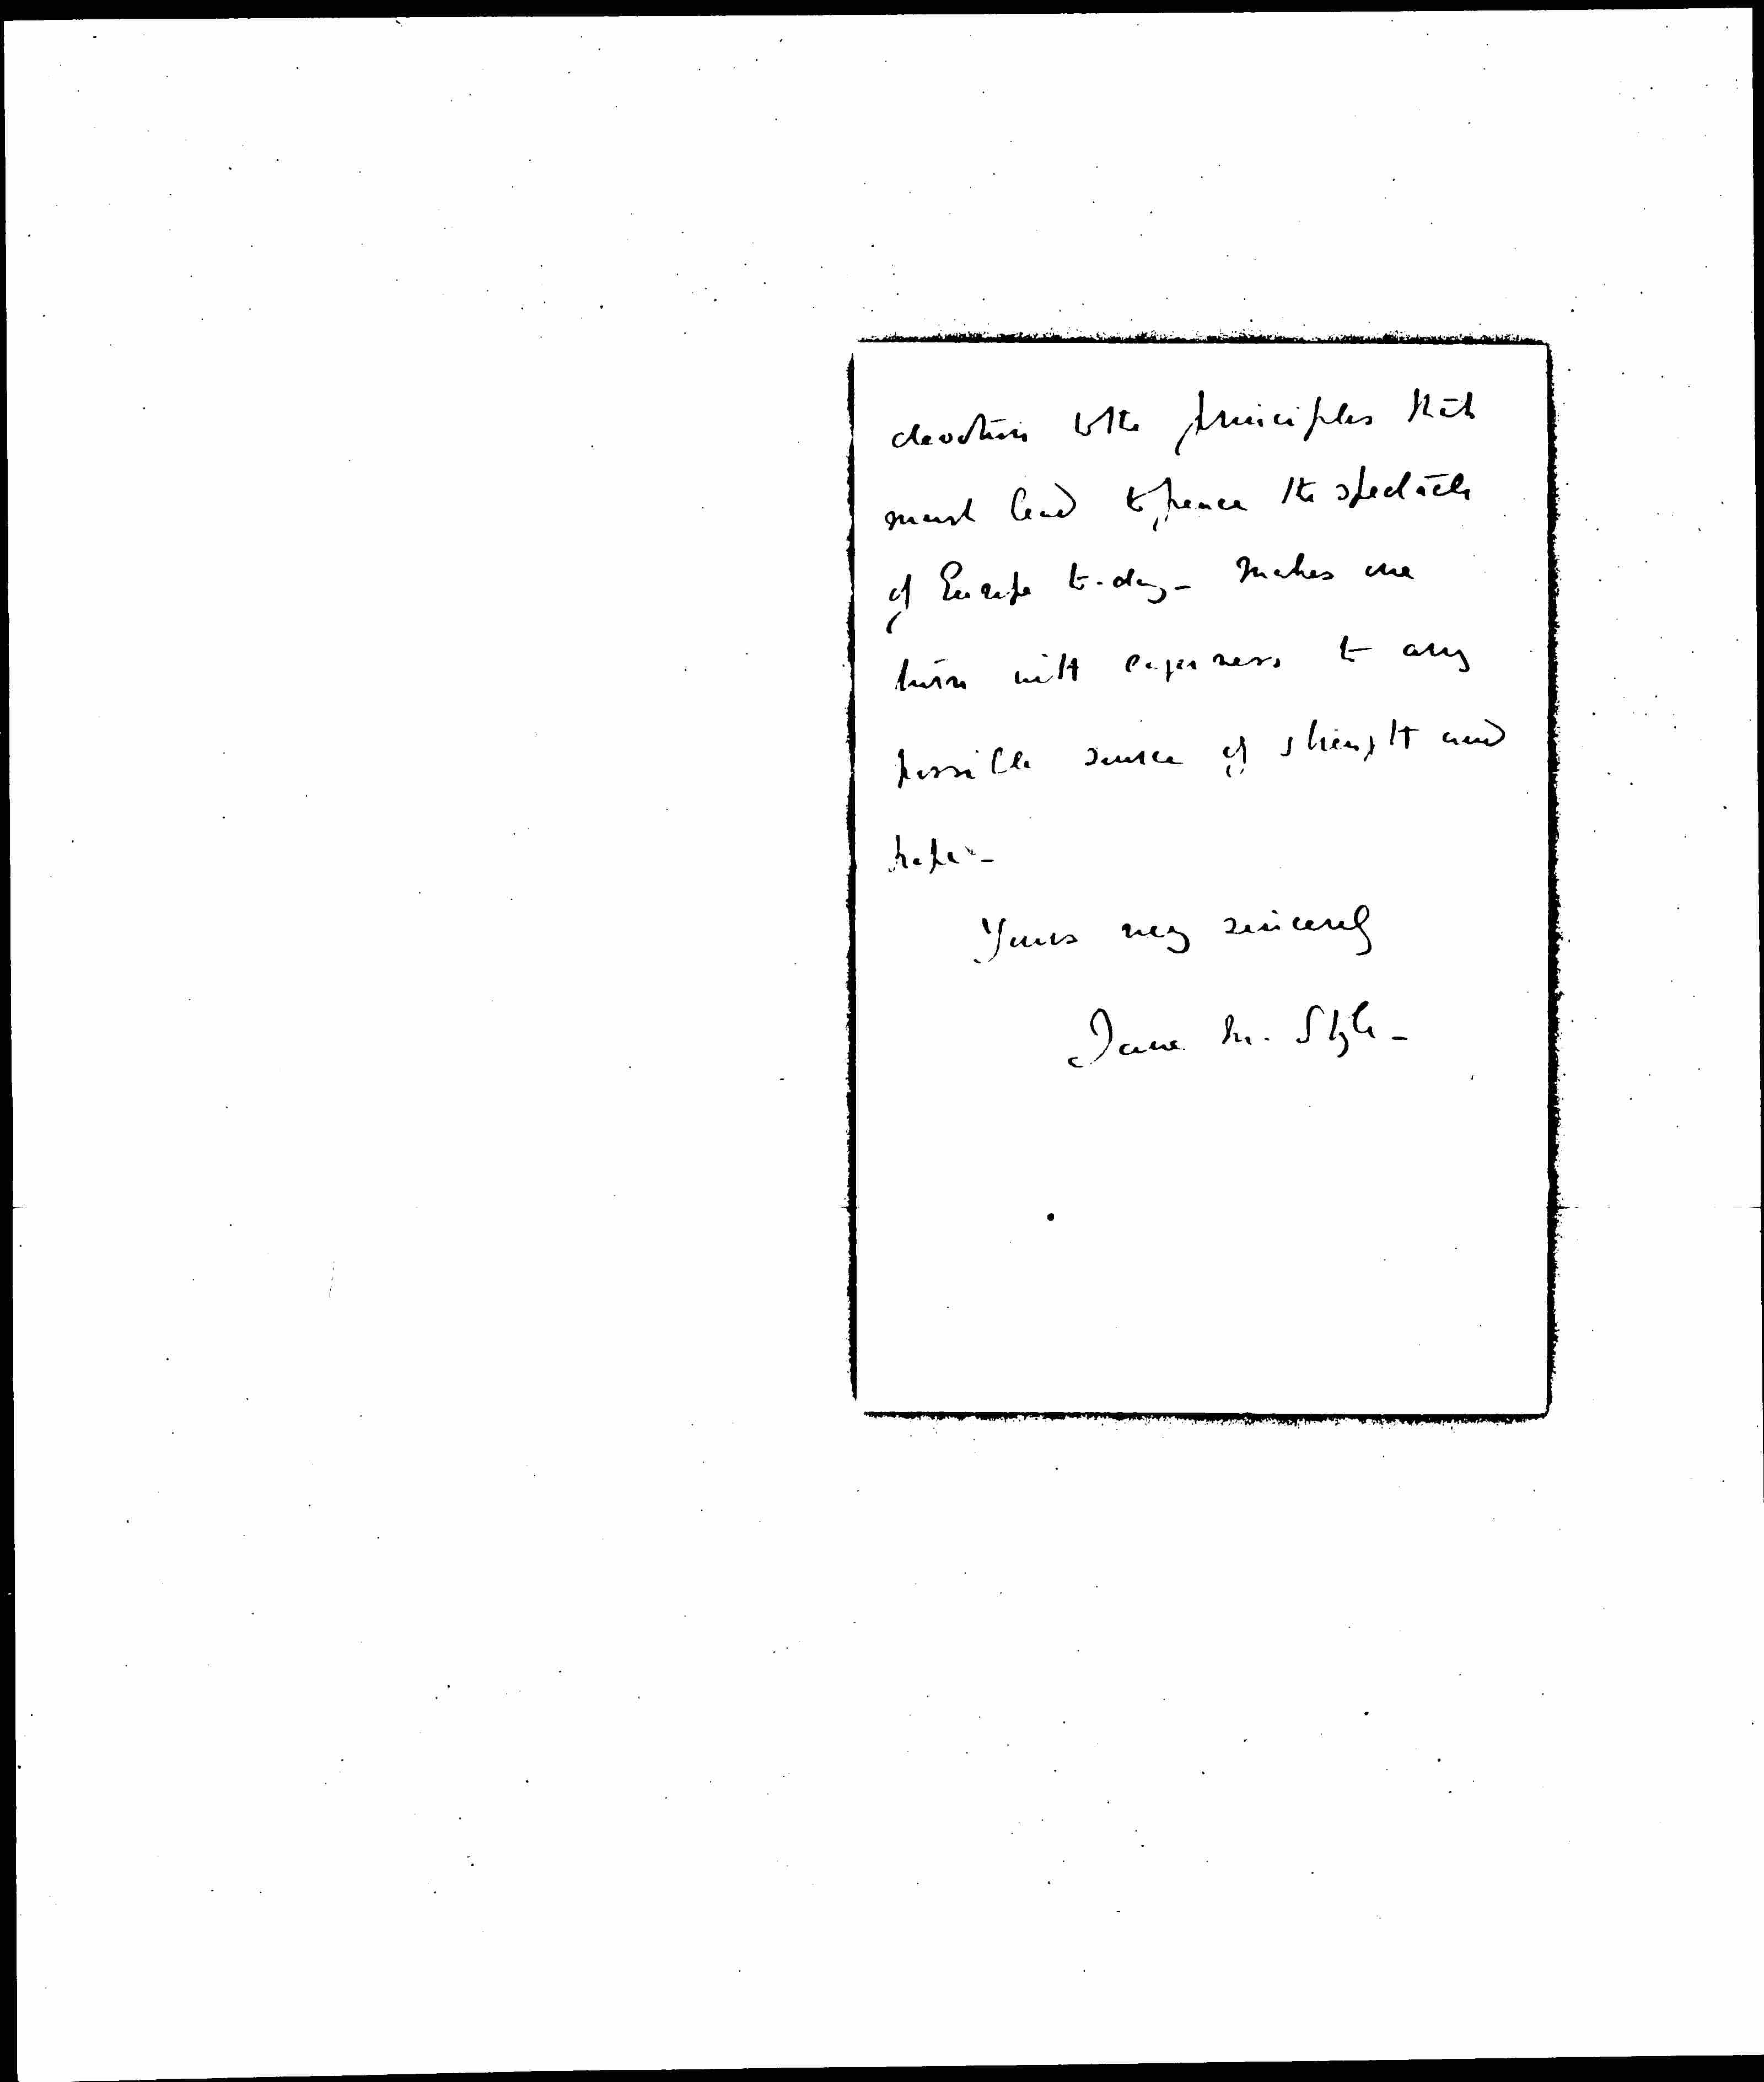 devotion to the principles that
must lead to peace the spectacle
of Europe to-day - makes one
turn with eagerness to any
possible source of strength and
hope -
Yours very sincerely
Jane M. Style -